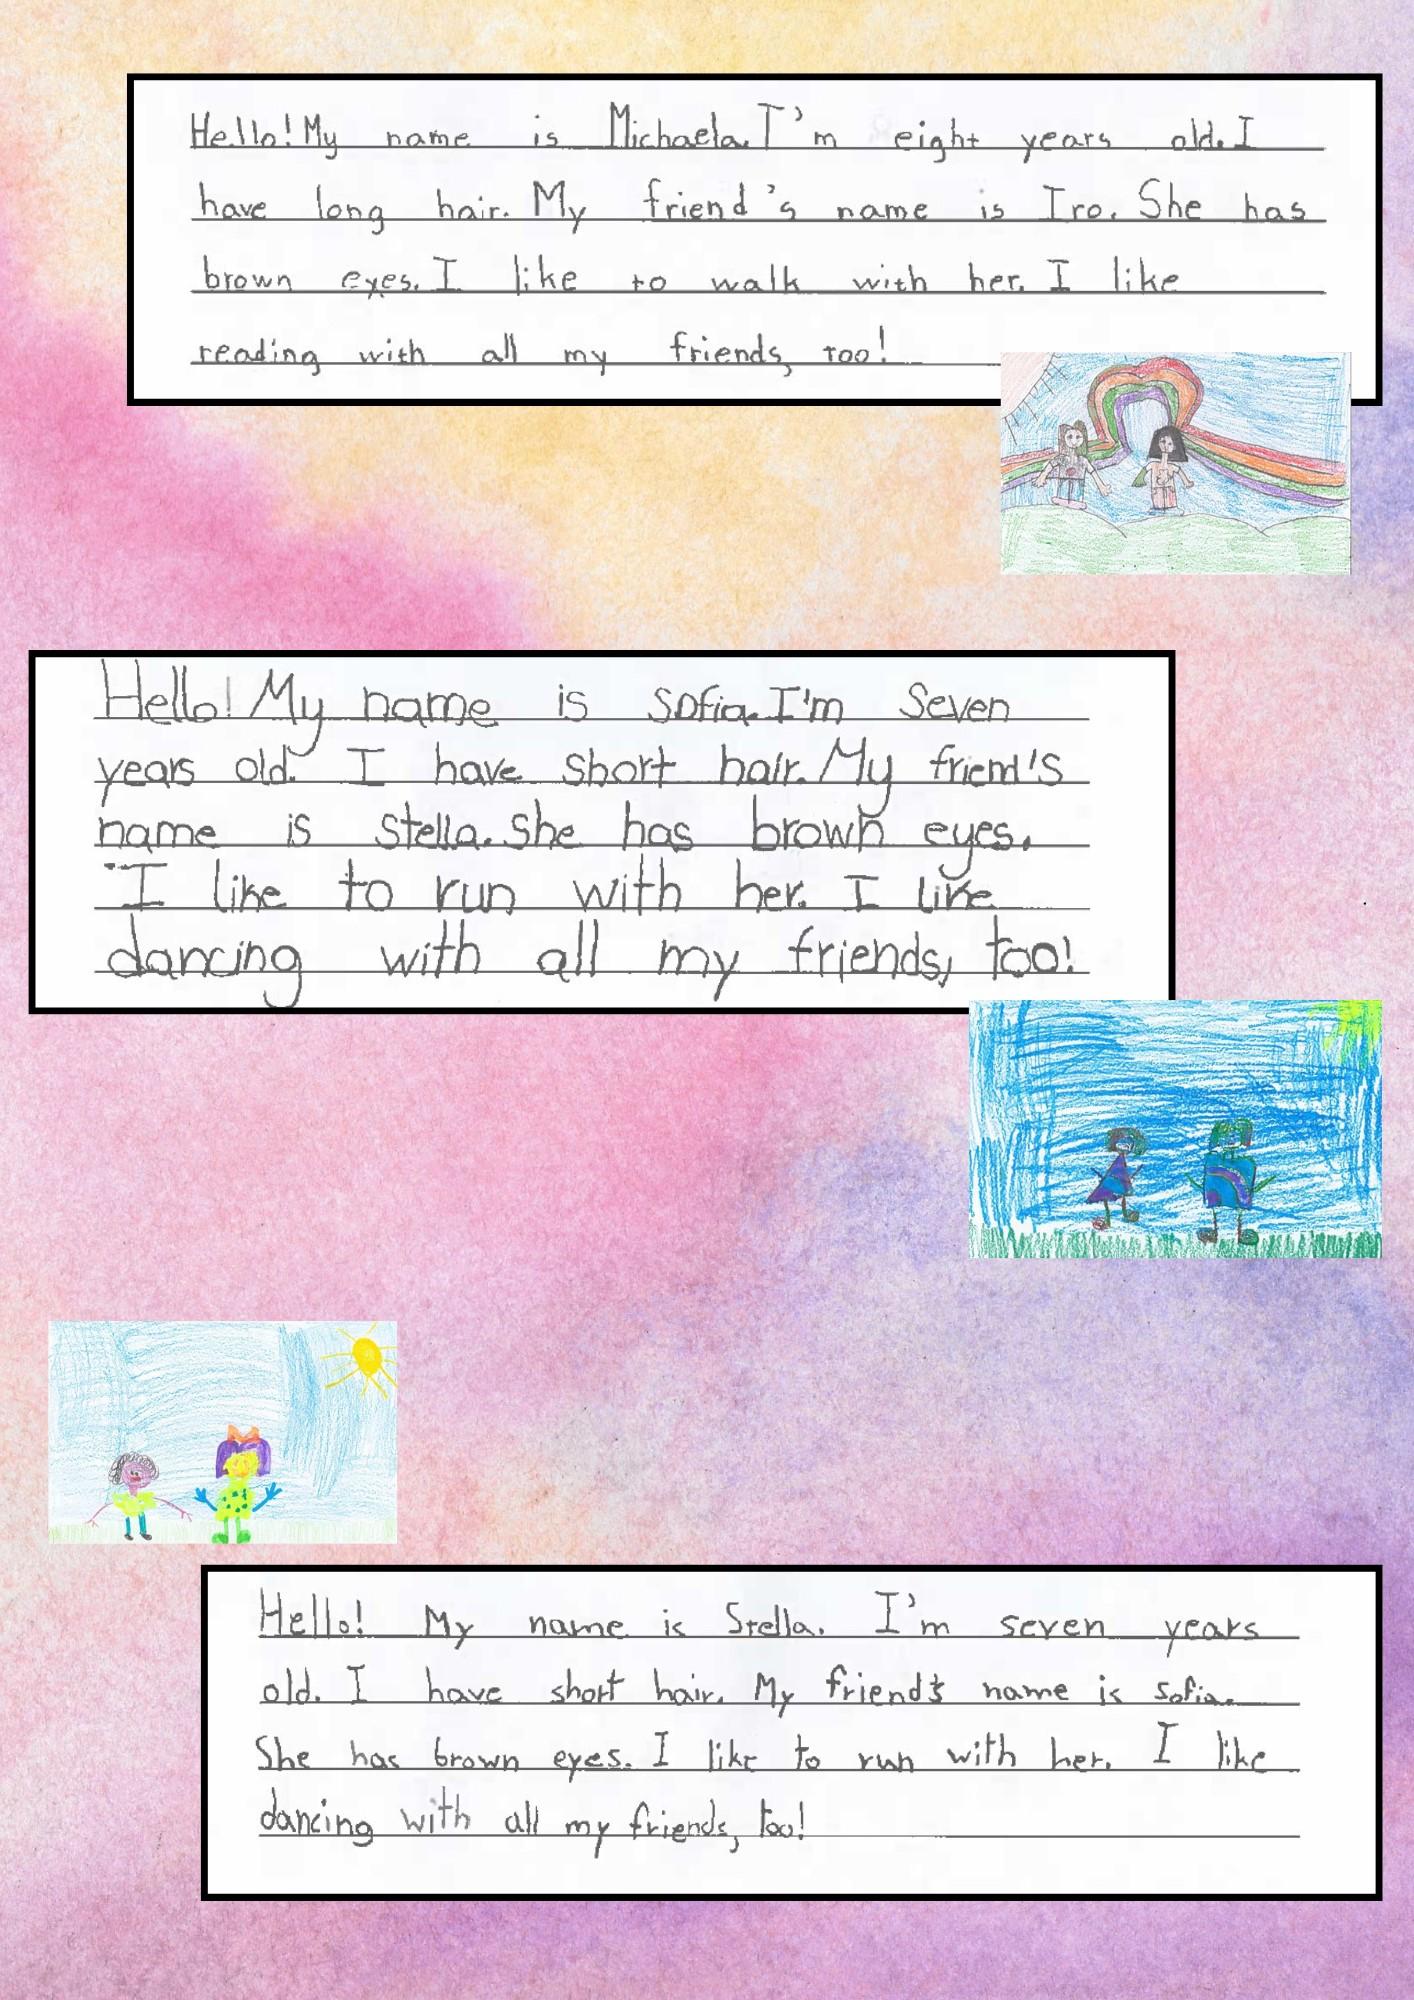 Hello! My name is Michaela. I'm eight years old. I
have long hair. My friend's name is Iro. She has
brown eyes. I like to walk with her. I like
reading with all my friends, too!
Hello! My name is Sofia. I'm seven
years old. I have short hair. My friend's
name is Stella. She has brown eyes.
I like to run with her. I like
dancing with all my friends, too!
Hello! My name is Stella. I'm seven years
old. I have short hair. My friend's name is Sofia.
She has brown eyes. I like to run with her. I like
dancing with all my friends, too!